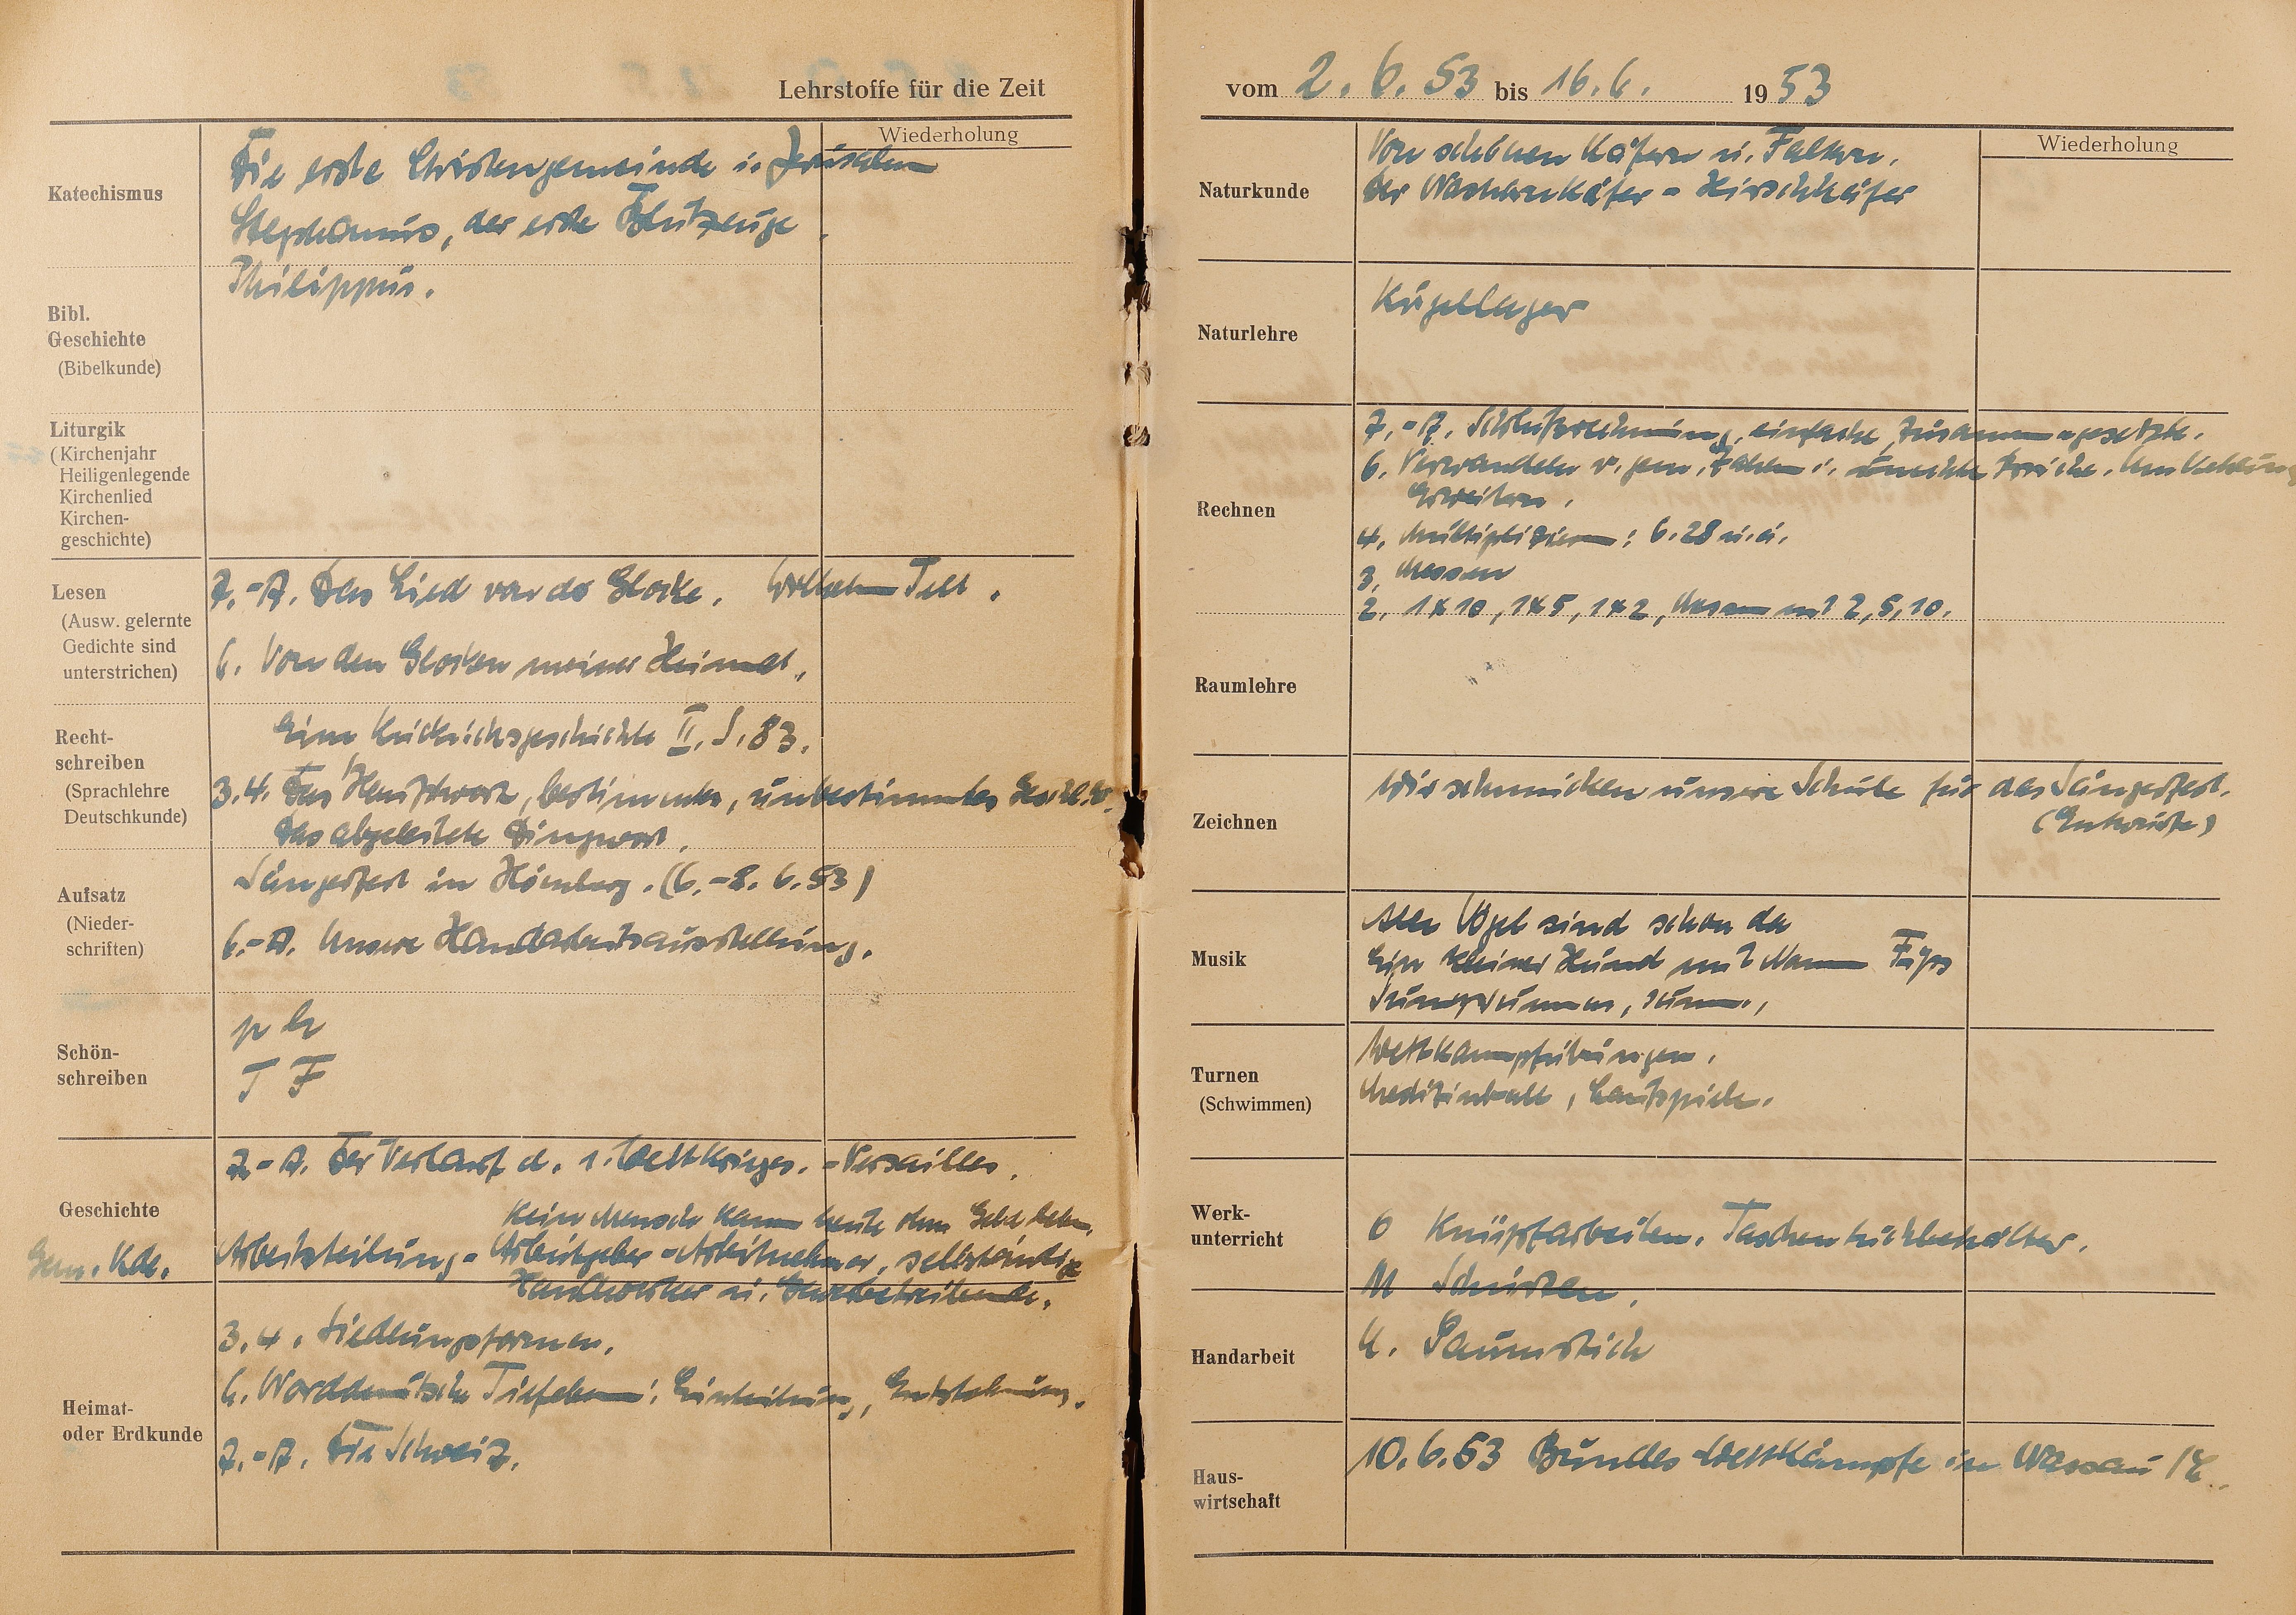 Lehrstoffe für die Zeit
Wiederholung
Katechismus
Die erste Christengemeinde i. Jerusalem
Stephanus, der erste Blutzeuge.
Bibl.
Geschichte
(Bibelkunde)
Philippus.
Liturgik
(Kirchenjahr
Heiligenlegende
Kirchenlied
Kirchen-
geschichte)
Lesen
(Ausw. gelernte
Gedichte sind
unterstrichen)
7.-8. Das Lied von der Glocke. Wilhelm Tell.
6. Von den Glocken meiner Heimat.
Recht-
schreiben
(Sprachlehre
Deutschkunde)
Eine Kuckucksgeschichte II. S. 83.
3.4. Das Hauptwort, bestimmtes, unbestimmtes
Das abgeleitete Dingwort.
Aufsatz
(Nieder-
schriften)
Sängerfest in Homberg. (6.-8. 6. 53)
6.-8. Unsere Handarbeitsausstellung.
Schön-
schreiben
p
T F
Geschichte
7.-8. Der Verlauf d. 1. Weltkrieges. - Versailles.
Kein Mensch kann heute ohne Geld leben.
Gem. Kde.
Arbeitsteilung - Arbeitgeber - Arbeitnehmer, selbständige
Handwerker u. Gewerbetreibende.
Heimat-
oder Erdkunde
3.4. Siedlungsformen.
6. Norddeutsche Tiefebene: Einteilung, Entstehung.
7.-8. Die Schweiz.
vom 2. 6. 53 bis 16. 6. 1953
Wiederholung
Naturkunde
Von schönen Käfern u. Faltern.
Der Nashornkäfer - Hirschkäfer
Naturlehre
Kugellager
Rechnen
7.-8. Schlußrechnung, einfache, zusammengesetzte.
6. Verwandeln v. gem. Zahlen i. unechte Brüche. Umkehrung
Erweitern.
4. Multiplizieren: 6.28 u.ä.
3. Messen
2. 1x10, 1x5, 1x2, Messen mit 2, 5, 10.
Raumlehre
Zeichnen
Wir schmücken unsere Schule für das Sängerfest.
(Entwürfe)
Musik
Alle Vögel sind schon da
Ein kleiner Hund mit Namen Fips
Summ summ, summ.,
Turnen
(Schwimmen)
Wettkampfübungen.
Medizinball, Laufspiele.
Werk-
unterricht
O Knüpfarbeiten. Taschentuchbehälter.
M Schürzen.
Handarbeit
U. Saumstich
Haus-
wirtschaft
10. 6. 53 Bundes-Wettkämpfe in Nassau